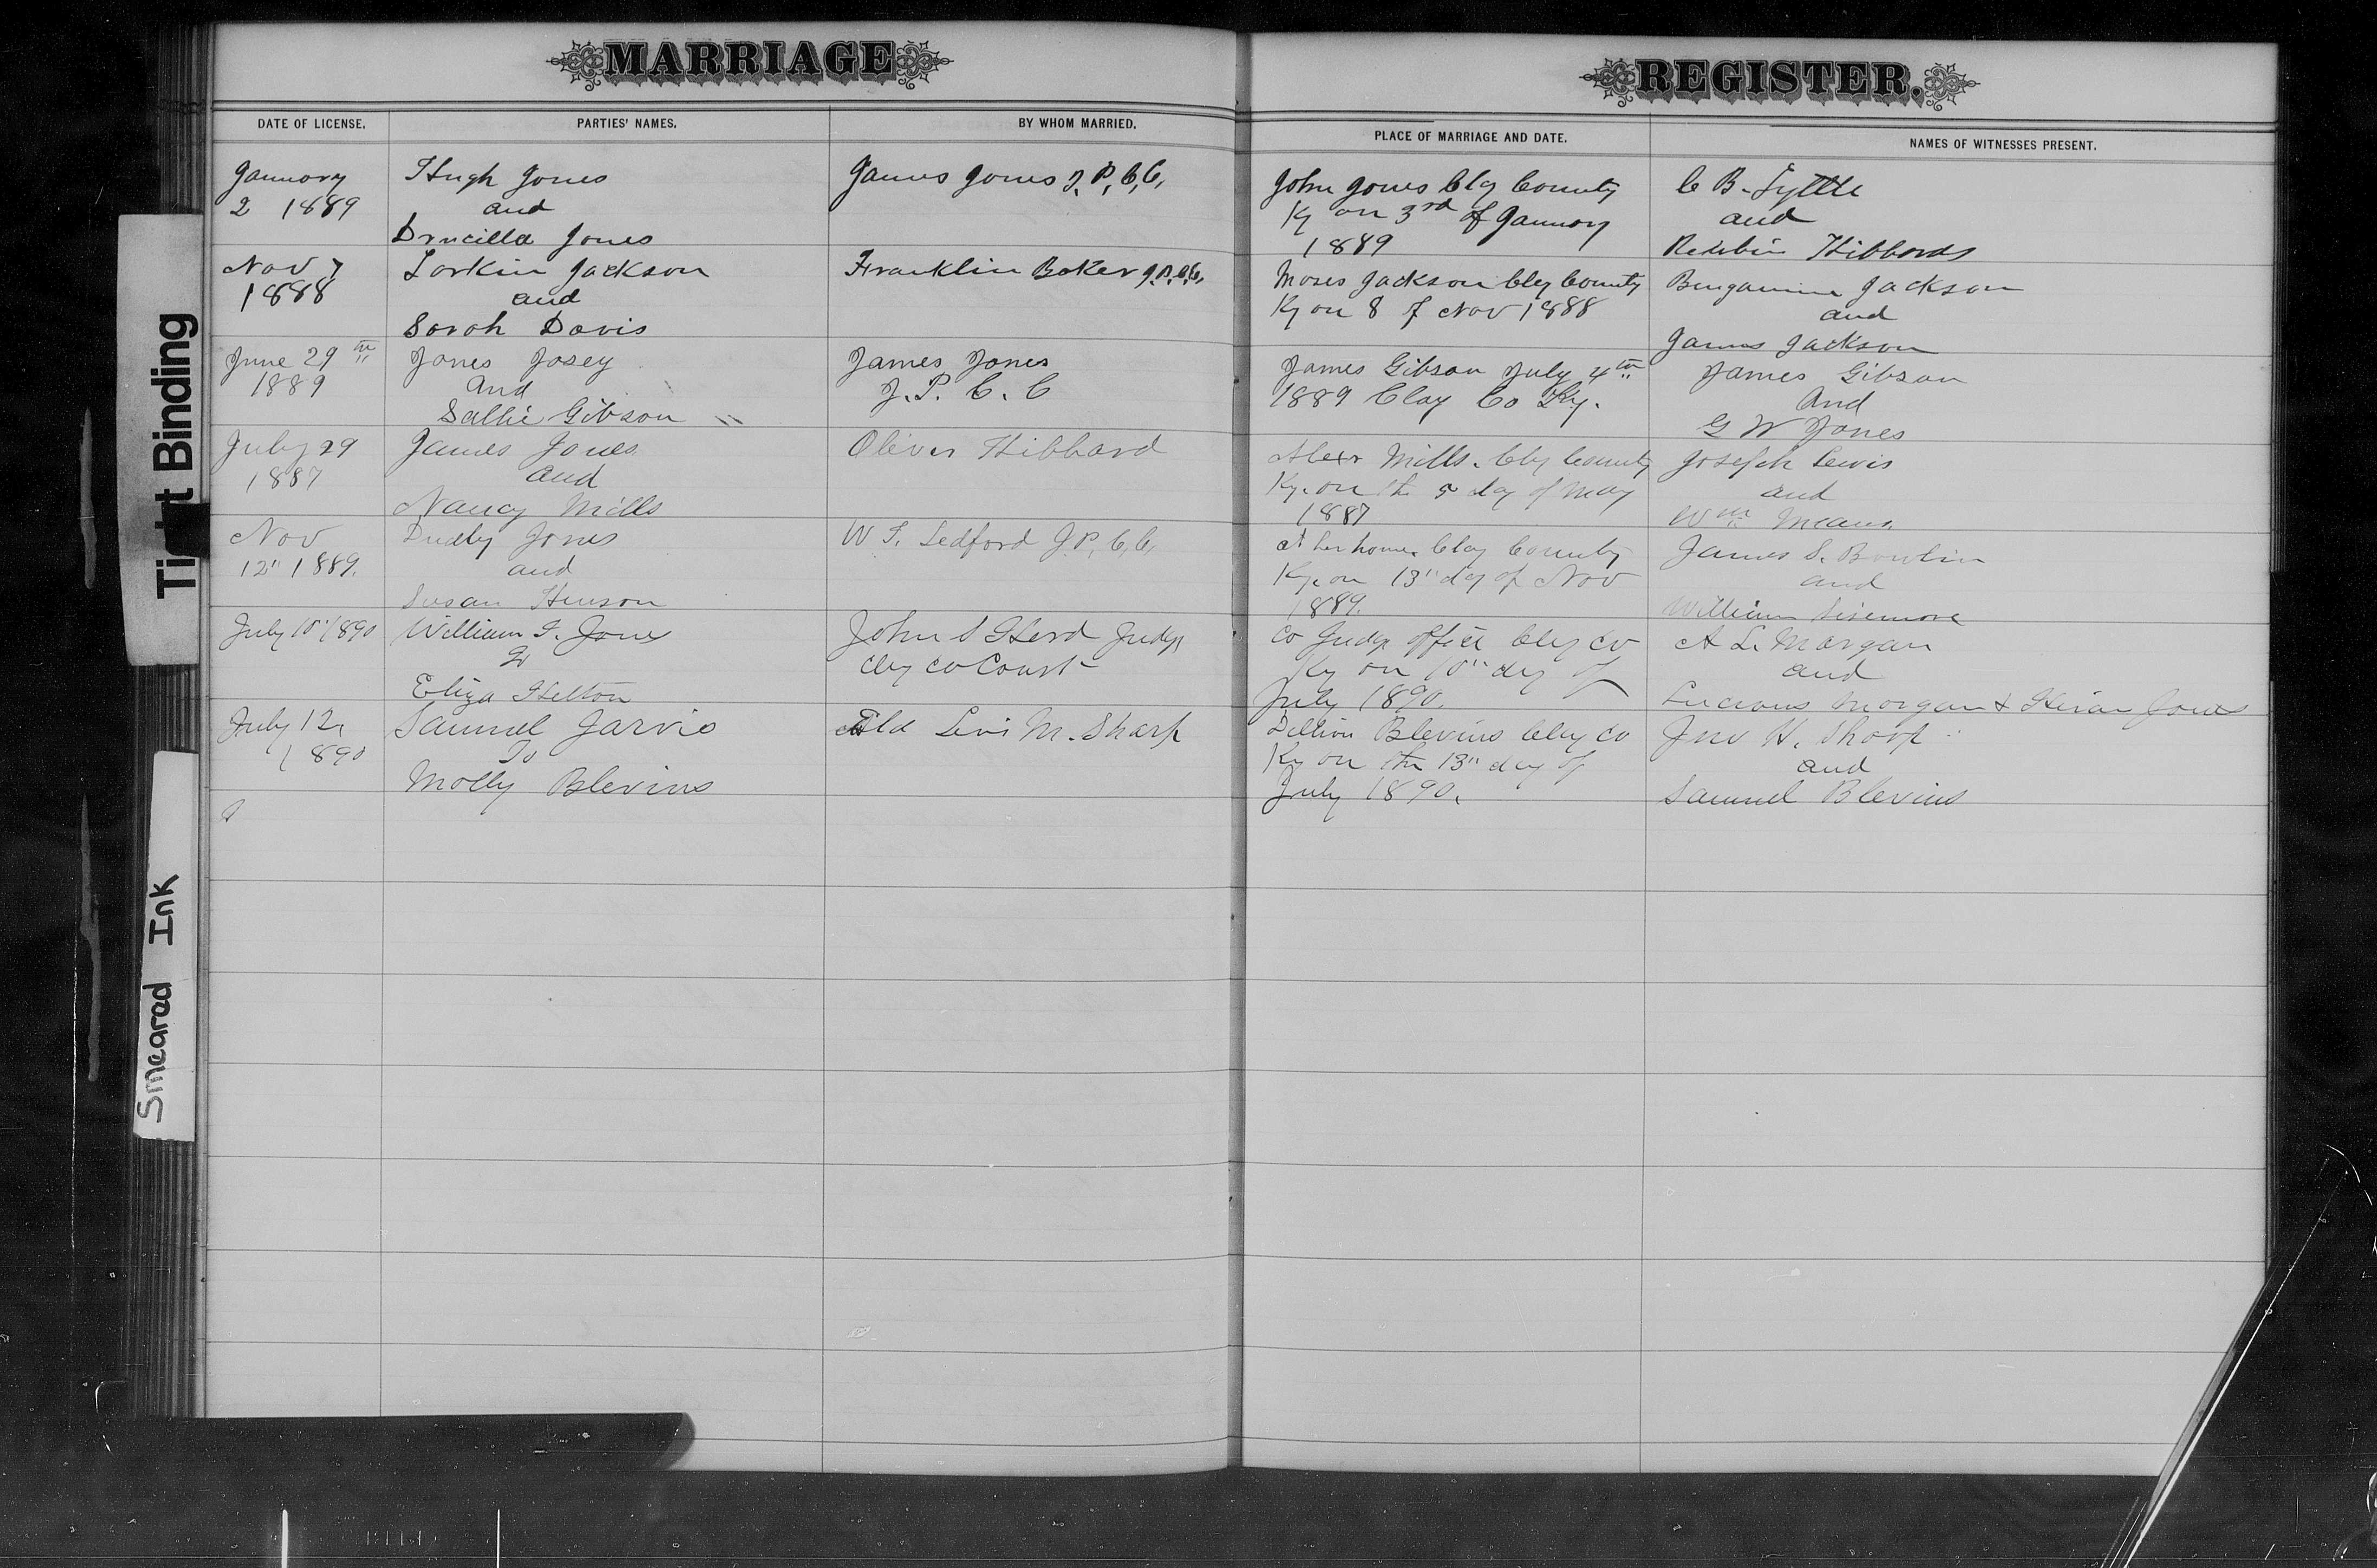 MARRIAGE REGISTER.
DATE OF LICENSE. PARTIES' NAMES. BY WHOM MARRIED. PLACE OF MARRIAGE AND DATE. NAMES OF WITNESSES PRESENT.
Jannary
2 1889
Hugh Jones
and
Drucilla Jones
James Jones J.P.C.C.
John Jones Clay County
Ky on 3rd of Jannary
1889
C B. Lyttle
and
Hibbards
Nov 7
1888
Larkin Jackson
and
Sarah Davis
Franklin Baker J.P.C.C.
Moses Jackson Clay County
Ky on 8 of Nov 1888
Bengamine Jackson
and
James Jackson
June 29th
1889
Jones Josey
And
Sallie Gibson
James Jones
J. P. C. C
James Gibson July 4th
1889 Clay Co Ky.
James Gibson
And
G W Jones
July 29
1887
James Jones
and
Nancy Mills
Oliver Hibbard
Alexr Mills. Clay County
Ky. on the 5 day of May
1887
Joseph Lewis
and
Wm Means
Nov
12" 1889.
Dudly Jones
and
Susan Henson
W T. Ledford J.P.C.C.
at her home. Clay County
Ky. on 13" day of Nov
1889.
James S. Bowlin
and
William Sisemore
July 10" 1890
William T. Jones
To
Eliza Helton
John S Herd Judge
Clay Co Court
Co Judge office Clay Co
Ky on 10" day of
July 1890.
A L. Morgan
and
Lucious Morgan & Hiram Jones
July 12,
1890
Samuel Jarvis
To
Molly Blevins
Eld Levi M. Sharp
Dillion Blevins Clay Co
Ky on the 13" day of
July 1890.
Jno H. Sharp
and
Samuel Blevins
Tight Binding
Smeared Ink